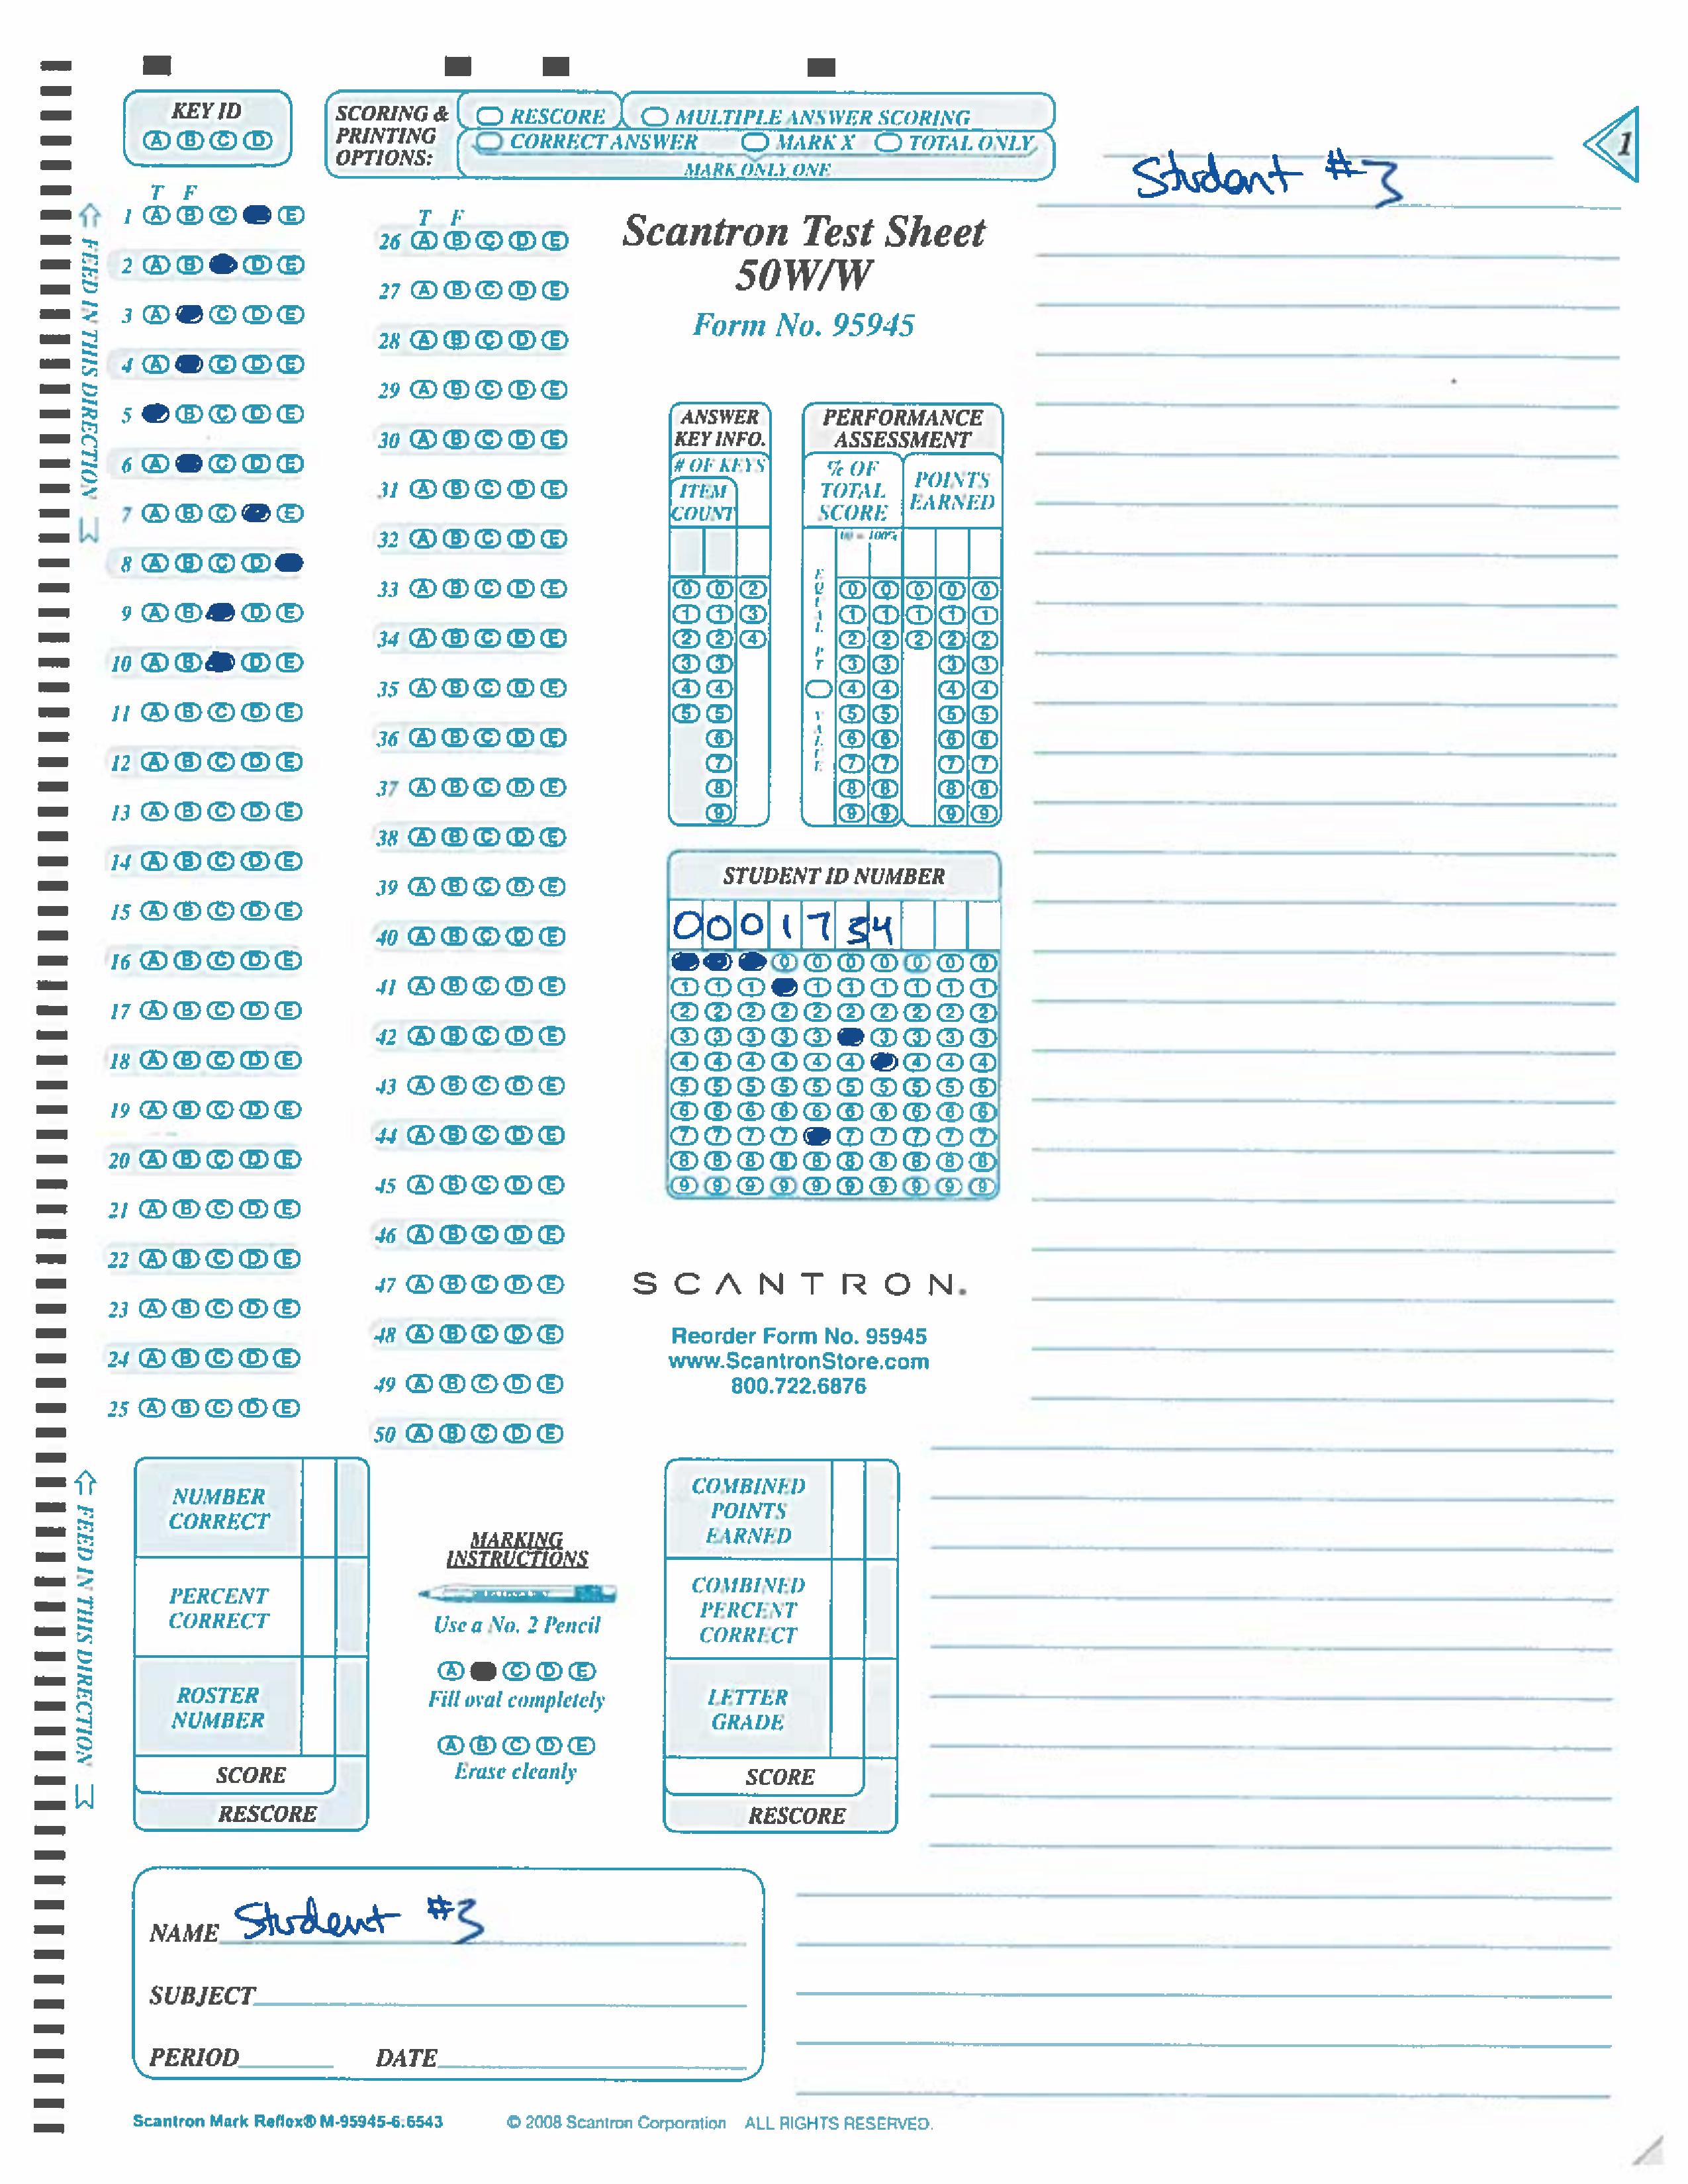 KEY ID
A B C D
SCORING & PRINTING OPTIONS:
RESCORE
MULTIPLE ANSWER SCORING
CORRECT ANSWER
MARK X
TOTAL ONLY
MARK ONLY ONE
1
Student #3
T F
1 A B C E
2 A B D E
3 A C D E
4 A C D E
5 B C D E
6 A C D E
7 A B C E
8 A B C D
9 A B D E
10 A B D E
11 A B C D E
12 A B C D E
13 A B C D E
14 A B C D E
15 A B C D E
16 A B C D E
17 A B C D E
18 A B C D E
19 A B C D E
20 A B C D E
21 A B C D E
22 A B C D E
23 A B C D E
24 A B C D E
25 A B C D E
FEED IN THIS DIRECTION
FEED IN THIS DIRECTION
T F
26 A B C D E
27 A B C D E
28 A B C D E
29 A B C D E
30 A B C D E
31 A B C D E
32 A B C D E
33 A B C D E
34 A B C D E
35 A B C D E
36 A B C D E
37 A B C D E
38 A B C D E
39 A B C D E
40 A B C D E
41 A B C D E
42 A B C D E
43 A B C D E
44 A B C D E
45 A B C D E
46 A B C D E
47 A B C D E
48 A B C D E
49 A B C D E
50 A B C D E
Scantron Test Sheet
50W/W
Form No. 95945
ANSWER
KEY INFO.
# OF KEYS
ITEM
COUNT
0 0 2
1 1 3
2 2 4
3 3
4 4
5 5
6
7
8
9
PERFORMANCE
ASSESSMENT
% OF
TOTAL
SCORE
POINTS
EARNED
00 = 100%
EQUAL PT VALUE
0 0 0 0 0
1 1 1 1 1
2 2 2 2 2
3 3 3 3
4 4 4 4
5 5 5 5
6 6 6 6
7 7 7 7
8 8 8 8
9 9 9 9
STUDENT ID NUMBER
0 0 0 1 7 3 4
0 0 0 0 0 0 0
1 1 1 1 1 1 1 1 1
2 2 2 2 2 2 2 2 2 2
3 3 3 3 3 3 3 3 3
4 4 4 4 4 4 4 4 4
5 5 5 5 5 5 5 5 5 5
6 6 6 6 6 6 6 6 6 6
7 7 7 7 7 7 7 7 7
8 8 8 8 8 8 8 8 8 8
9 9 9 9 9 9 9 9 9 9
SCANTRON.
Reorder Form No. 95945
www.ScantronStore.com
800.722.6876
NUMBER
CORRECT
PERCENT
CORRECT
ROSTER
NUMBER
SCORE
RESCORE
MARKING
INSTRUCTIONS
Use a No. 2 Pencil
A C D E
Fill oval completely
A B C D E
Erase cleanly
COMBINED
POINTS
EARNED
COMBINED
PERCENT
CORRECT
LETTER
GRADE
SCORE
RESCORE
NAME Student #3
SUBJECT
PERIOD DATE
Scantron Mark Reflex® M-95945-6:6543 © 2008 Scantron Corporation ALL RIGHTS RESERVED.